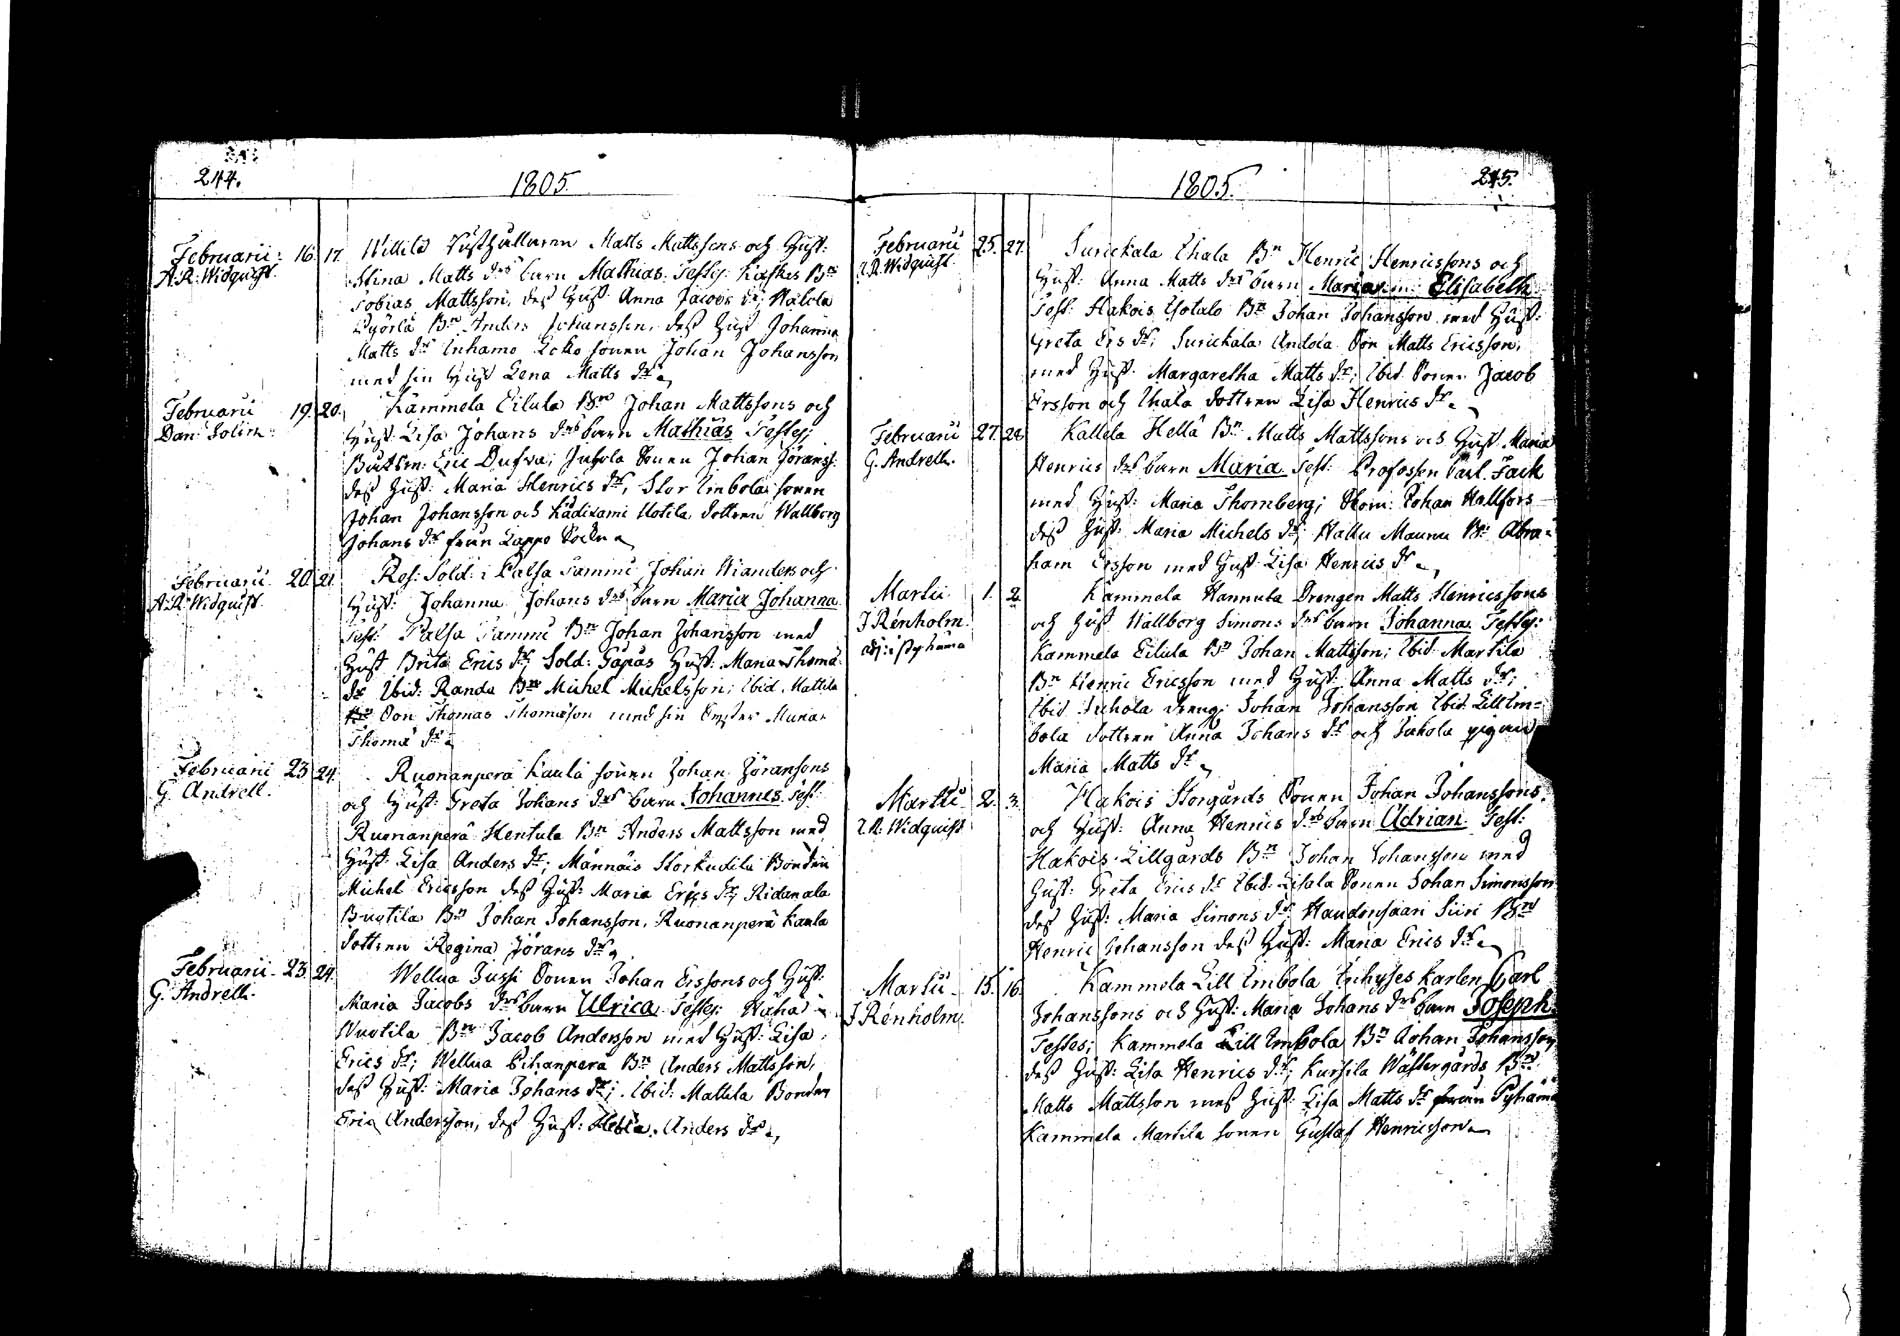 244.
1805.
Februarii 16. 17. Wittilä Matts Mattssons och Hust:
A. R. Widquist. Stina Matts drs barn Mathias. Testes: Kaskes Bn
Tobias Mattsson, dess Hust: Anna Jacobs dr; Walola
Bn Anders Johansson, dess Hust Johanna
Matts dr Inhamo Ecko sonen Johan Johansson
med sin Hust Lena Matts dr
Februarii 19. 20. Kämmelä Eilula Bn Johan Mattssons och
Dan: Solin. Hust: Lisa Johans drs barn Mathias Testes;
Båtsm: Eric Dufva; Juhola Sonen Johan Jöranss:
dess Hust: Maria Henrics dr; Stor Imbola sonen
Johan Johansson och Kädixami Uotila dottren Wallborg
Johans dr från Lappo Sockn
Februarii 20. 21. Res: Sold: i Palsa Tammi Johan Wianders och
A. R. Widquist. Hust: Johanna Johans drs barn Maria Johanna
Test: Palsa Tammi Bn Johan Johansson med
Hust Brita Erics dr; Sold: Gåpås Hust: Maria Thomæ
dr Ibid: Randa Bn Michel Michelsson; Ibid. Mattila
Son Thomas Thomæson med sin Syster Maria
Thomæ dr
Februarii 23. 24. Ruonanperä Kaula sonen Johan Jöransons
G. Andrell. och Hust: Greta Johans drs barn Johannes. Test:
Ruonanperä Hentula Bn Anders Mattsson med
Hust: Lisa Anders dr; Männäis Storkudila Bonden
Michel Ericsson dess Hust: Maria Erics dr; Ridanala
Buotila Bn Johan Johansson, Ruonanperä Kaula
dottren Regina Jörans dr
Februarii 23. 24. Wellua Jussi Sonen Johan Erssons och Hust:
G. Andrell. Maria Jacobs drs barn Ulrica Testes: Waha
Wuotila Bn Jacob Andersson med Hust: Lisa
Erics dr; Wellua Pihanperä Bn Anders Mattsson,
dess Hust: Maria Johans dr; Ibid: Mattila Bonden
Eric Andersson, dess Hust: Anders dr
245.
1805.
Februarii 25. 27. Surickala Ihala Bn Henric Henricssons och
A. R. Widquist. Hust: Anna Matts drs barn Maria Elisabeth
Test: Hakois Ylotalo Bn Johan Johansson med Hust:
Greta Ers dr; Surickala Andola Son Matts Ericsson,
med Hust: Margaretha Matts dr; Ibid. Sonen Jacob
Ersson och Ihala dottren Lisa Henrics dr
Februarii 27. 28. Kallela Hellä Bn Matts Mattssons och Hust Maria
G. Andrell. Henrics drs barn Maria Test: Profossen Carl Fack
med Hust: Maria Thornberg; Skom: Johan Hallfors
dess Hust: Maria Michels dr; Hallu Maunu Bn Abra-
ham Ersson med Hust Lisa Henrics dr
Martii 1. 2. Kämmela Hannula Drengen Matts Henricssons
J Rénholm. och Hust Wallborg Simons drs barn Johanna Testes:
adj: i Pyhäma Kammela Eilula Bn Johan Mattsson; Ibid Martila
Bn Henric Ericsson med Hust: Anna Matts dr;
Ibid Juhola dreng: Johan Johansson Ibid. Lill Im-
bola dottren Anna Johans dr och Juhola pigan
Maria Matts dr
Martii 2. 3. Hakois Storgårds Sonen Johan Johanssons
A. R. Widquist och Hust: Anna Henrics drs barn Adrian. Test:
Hakois Lillgårds Bn Johan Johansson med
Hust: Greta Erics dr Ibid: Lisala Sonen Johan Simonsson
dess Hust: Maria Simons dr; Haudonsaari Siiri Bn
Henric Johansson dess Hust: Maria Erics dr
Martii 15. 16. Kammela Lill Imbola Inhyses karlen Carl
J Rénholm. Johanssons och Hust: Maria Johans drs barn Joseph.
Testes; Kammela Lill Imbola Bn Johan Johansson,
dess Hust: Lisa Henrics dr; Kursila Wästergårds Bn
Matts Mattsson med Hust: Lisa Matts dr från Pyhämä
Kammela Martila sonen Gustaf Henricsson